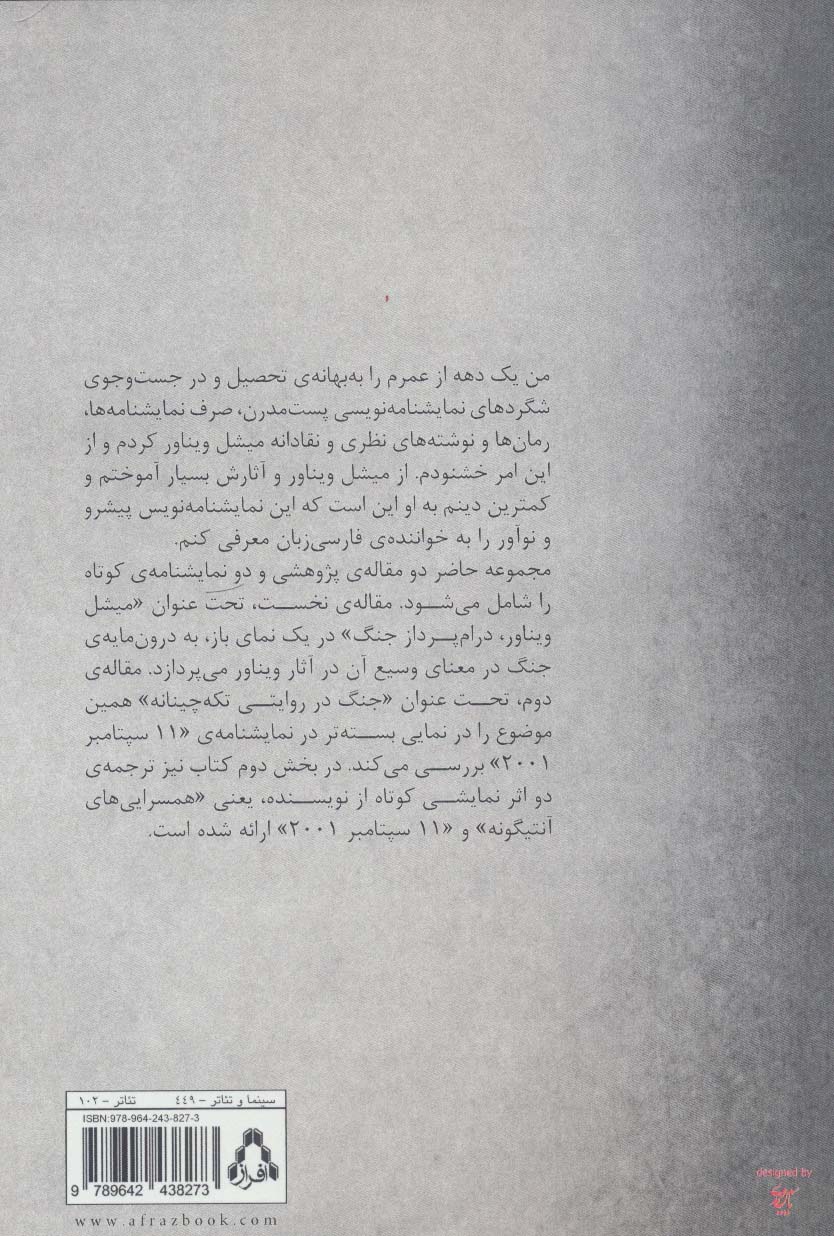 من یک دهه از عمرم را به‌بهانه‌ی تحصیل و در جست‌وجوی
شگردهای نمایشنامه‌نویسی پست‌مدرن، صرف نمایشنامه‌ها،
رمان‌ها و نوشته‌های نظری و نقادانه میشل ویناور کردم و از
این امر خشنودم. از میشل ویناور و آثارش بسیار آموختم و
کمترین دینم به او این است که این نمایشنامه‌نویس پیشرو
و نوآور را به خواننده‌ی فارسی‌زبان معرفی کنم.
مجموعه حاضر دو مقاله‌ی پژوهشی و دو نمایشنامه‌ی کوتاه
را شامل می‌شود. مقاله‌ی نخست، تحت عنوان «میشل
ویناور، درام‌پرداز جنگ» در یک نمای باز، به درون‌مایه‌ی
جنگ در معنای وسیع آن در آثار ویناور می‌پردازد. مقاله‌ی
دوم، تحت عنوان «جنگ در روایتی تکه‌چینانه» همین
موضوع را در نمایی بسته‌تر در نمایشنامه‌ی «۱۱ سپتامبر
۲۰۰۱» بررسی می‌کند. در بخش دوم کتاب نیز ترجمه‌ی
دو اثر نمایشی کوتاه از نویسنده، یعنی «همسرایی‌های
آنتیگونه» و «۱۱ سپتامبر ۲۰۰۱» ارائه شده است.
سینما و تئاتر - ۴۴۹ تئاتر - ۱۰۲
ISBN:978-964-243-827-3
افراز
9 789642 438273
www.afrazbook.com
designed by